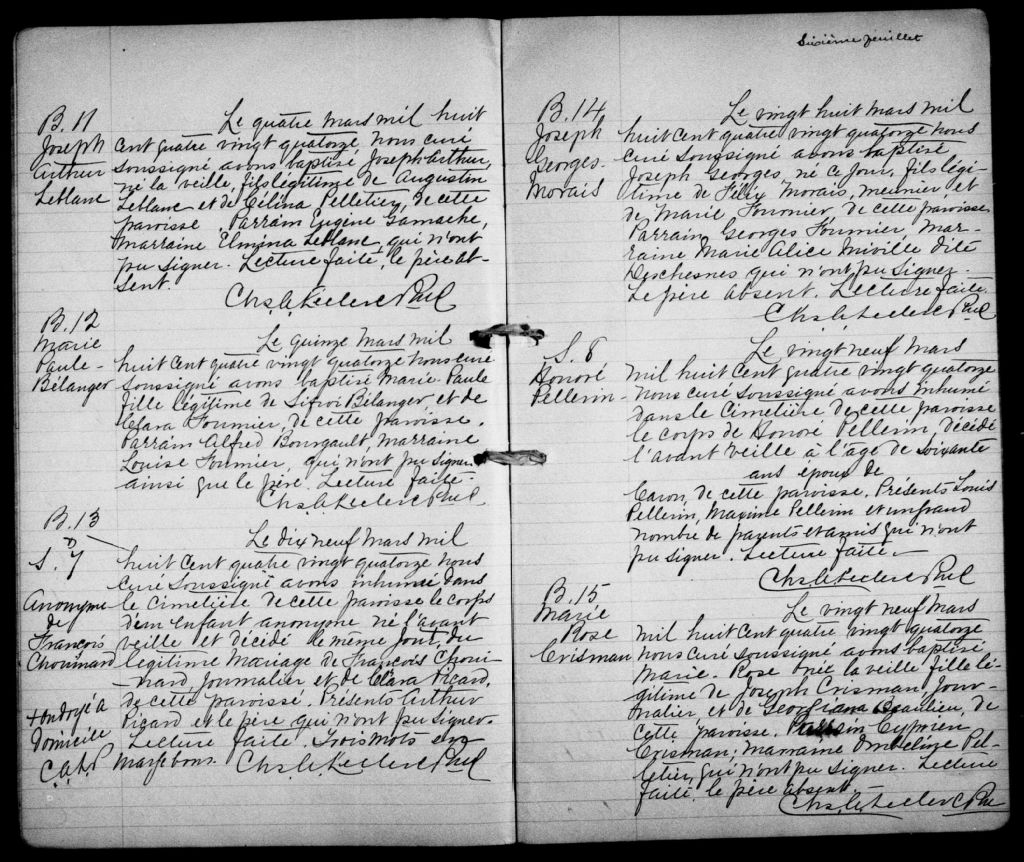 B.11
Joseph
Arthur
Leblanc
Le quatre mars mil huit
cent quatre vingt quatorze, nous curé
soussigné avons baptisé Joseph Arthur,
né la veille, fils légitime de Augustin
Leblanc et de Célina Pelletier, de cette
paroisse. Parrain Eugène Gamache,
marraine Elmina Leblanc, qui n'ont
pu signer. Lecture faite, le père ab-
sent.
Chs. G. Leclerc Ptre
B.12
Marie
Paule
Bélanger
Le quinze mars mil
huit cent quatre vingt quatorze nous curé
soussigné avons baptisé Marie Paule
fille légitime de Sifroi Bélanger et de
Clara Fournier, de cette paroisse.
Parrain Alfred Bourgault, marraine
Louise Fournier, qui n'ont pu signer
ainsi que le père. Lecture faite.
Chs. G. Leclerc Ptre
B.13
&
S. 7
Anonyme
de
François
Chouinard
+ ondoyé à
domicile
Le dix neuf mars mil
huit cent quatre vingt quatorze nous
curé soussigné avons inhumé dans
le cimetière de cette paroisse le corps
d'un enfant anonyme né l'avant
veille et décédé le même jour, du
légitime mariage de François Choui-
nard, journalier et de Clara Picard,
de cette paroisse. Présents Arthur
Picard et le père qui n'ont pu signer.
Lecture faite. Trois mots en
marge bons. Chs. G. Leclerc Ptre
Sixième feuillet
B.14
Joseph
Georges
Morais
Le vingt huit mars mil
huit cent quatre vingt quatorze nous
curé soussigné avons baptisé
Joseph Georges, né ce jour, fils légi-
time de Félix Morais, meunier et
de Marie Fournier, de cette paroisse
Parrain Georges Fournier, mar-
raine Marie Alice Miville dite
Deschesnes qui n'ont pu signer.
Le père absent. Lecture faite.
Chs. G. Leclerc Ptre
S. 8
Honoré
Pellerin
Le vingt neuf mars
mil huit cent quatre vingt quatorze
nous curé soussigné avons inhumé
dans le cimetière de cette paroisse
le corps de Honoré Pellerin, décédé
l'avant veille à l'âge de soixante
ans époux de
Caron, de cette paroisse. Présents Louis
Pellerin, Maxime Pellerin et un grand
nombre de parents et amis qui n'ont
pu signer. Lecture faite.
Chs. G. Leclerc Ptre
B.15
Marie
Rose
Crisman
Le vingt neuf mars
mil huit cent quatre vingt quatorze
nous curé soussigné avons baptisé
Marie Rose née la veille fille lé-
gitime de Joseph Crisman, jour-
nalier, et de Georgiana de
cette paroisse. Parrain Cyprien
Crisman; marraine Ombeline Pel-
letier, qui n'ont pu signer. Lecture
faite, le père absent.
Chs. G. Leclerc Ptre